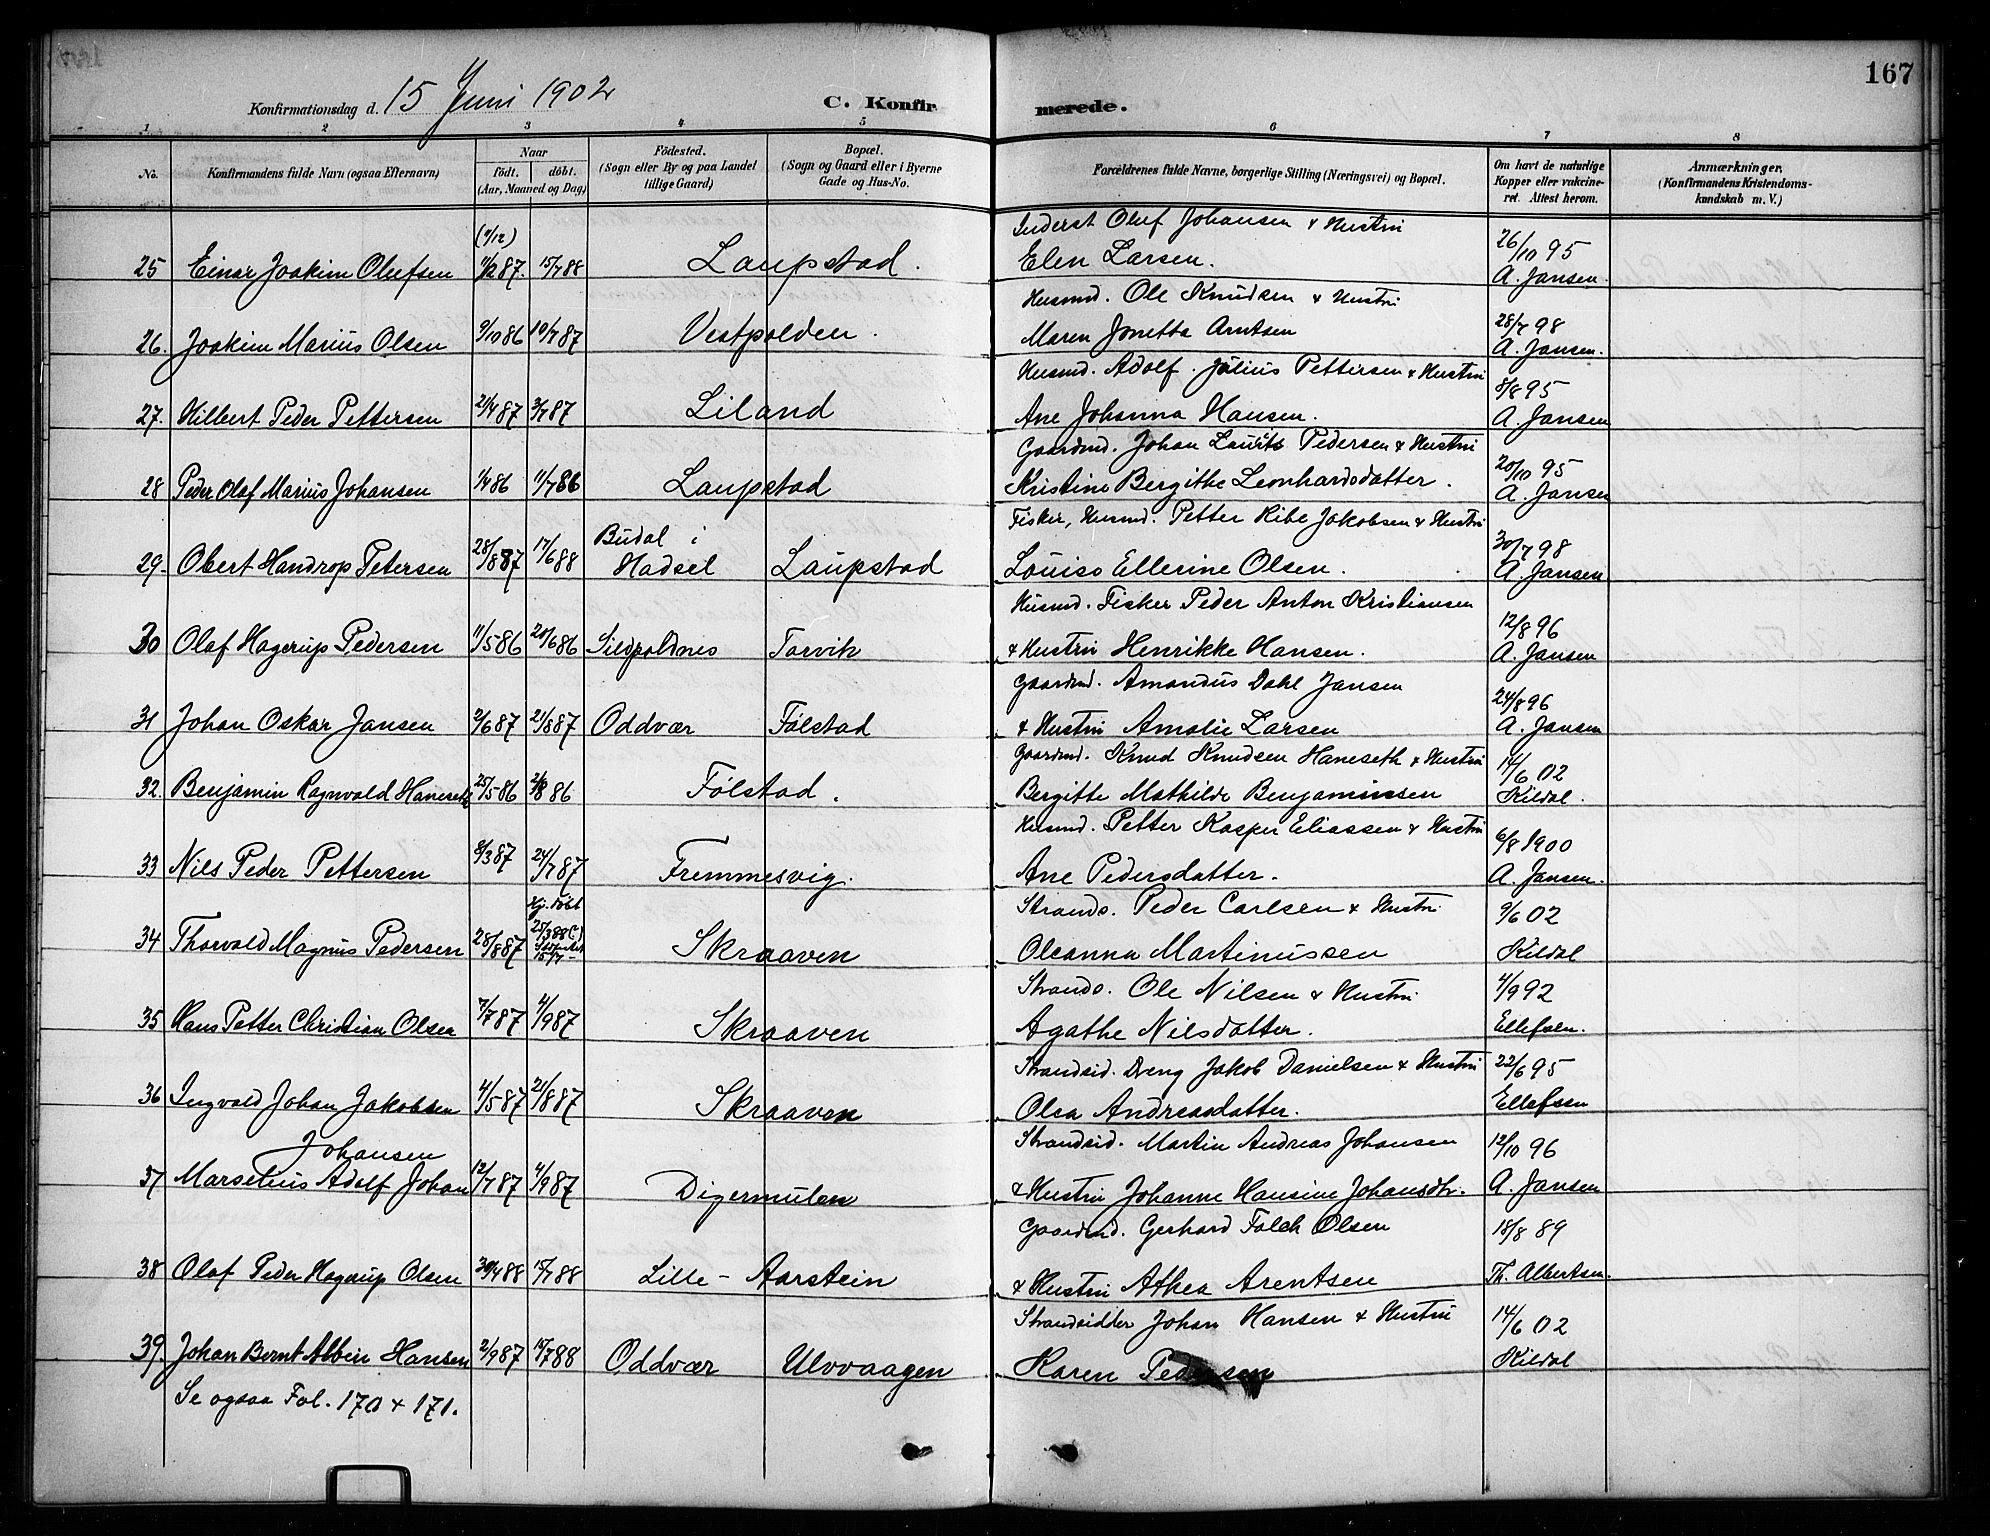 167
Konfirmationsdag d. 15 Juni 1902
C. Konfirmerede.
1 2 3 4 5 6 7 8
No. Konfirmandens fulde Navn (ogsaa Efternavn) Naar født. døbt. (Aar, Maaned og Dag) Fødested. (Sogn eller By og paa Landet tillige Gaard) Bopæl. (Sogn og Gaard eller i Byerne Gade og Hus-No. Forældrenes fulde Navne, borgerlige Stilling (Næringsvei) og Bopæl. Om havt de naturlige Kopper eller vakcineret. Attest herom. Anmærkninger, (Konfirmandens Kristendomskundskab m. V.)
Inderst Oluf Johansen & Hustru
25 Einar Joakim Olufsen 11/12 87. 15/7 88 Laupstad. Elen Larsen. 26/10 95 A. Jansen.
Husmd. Ole Knudsen & Hustru
26. Joakim Marius Olsen 9/10 86 19/7 87 Vestpolden. Maren Jonetta Arntsen 28/7 98 A. Jansen.
Husmd. Adolf Julius Pettersen & Hustru
27. Hilbert Peder Pettersen 21/4 87 3/7 87 Liland Ane Johanna Hansen. 8/8 95 A. Jansen
Gaardmd. Johan Laurits Pedersen & Hustru
28 Peder Olaf Marius Johansen 1/4 86 11/7 86 Laupstad Kristine Bergithe Leonhardsdatter. 20/10 95 A. Jansen
Fisker, Husmd. Petter Ribe Jakobsen & Hustru
29. Obert Handrop Petersen 28/8 87 17/6 88 Budal i Hadsel Laupstad Louise Ellerine Olsen. 30/7 98 A. Jansen
Husmd. Fisker Peder Anton Kristiansen
30 Olaf Hagerup Pedersen 11/5 86 20/6 86 Sildpoldnes Torvik & Hustru Henrikke Hansen. 12/8 96 A. Jansen
Gaardmd. Amandus Dahl Jansen
31 Johan Oskar Jansen 2/6 87 21/8 87 Oddvær Følstad & Hustru Amalie Larsen 24/8 96 A. Jansen
Gaardmd. Knud Knudsen Haneseth & Hustru
32. Benjamin Ragnvald Haneseth 25/5 86 2/8 86 Følstad. Bergitte Mathilde Benjaminsen 14/6 02 Kildal.
Husmd. Petter Kasper Eliassen & Hustru
33 Nils Peder Pettersen 8/3 87 24/7 87 Fremmesvig. Ane Pedersdatter. 6/8 1900 A. Jansen.
Strands. Peder Carlsen & Hustru
34 Thorvald Magnus Pedersen 28/8 87 Hj. døbt 25/3 88 Skraaven Oleanna Martinussen 9/6 02 Kildal
Strands. Ole Nilsen & Hustru
35 Hans Petter Christian Olsen 7/7 87 4/9 87 Skraaven Agathe Nilsdatter. 4/9 92 Ellefsen.
Strandsid. Dreng Jakob Danielsen & Hustru
36 Ingvald Johan Jakobsen 4/5 87 21/8 87 Skraaven Olea Andreasdatter. 22/6 95 Ellefsen
Strandsid. Martin Andreas Johansen
37 Marselius Adolf Johan Johansen 12/7 87 4/9 87 Digermulen & Hustru Johanne Hansine Johansdtr. 12/10 96 A. Jansen
Gaardmd. Gerhard Falch Olsen
38 Olaf Peder Hagerup Olsen 30/4 88 15/7 88 Lille-Aarstein & Hustru Athea Arentsen 18/8 89 Th. Albertsen.
Strandsidder Johan Hansen & Hustru
39. Johan Bernt Albin Hansen 2/9 87 15/7 88 Oddvær Ulvvaagen Karen Pedersen 14/6 02 Kildal
Se ogsaa Fol. 170 & 171.